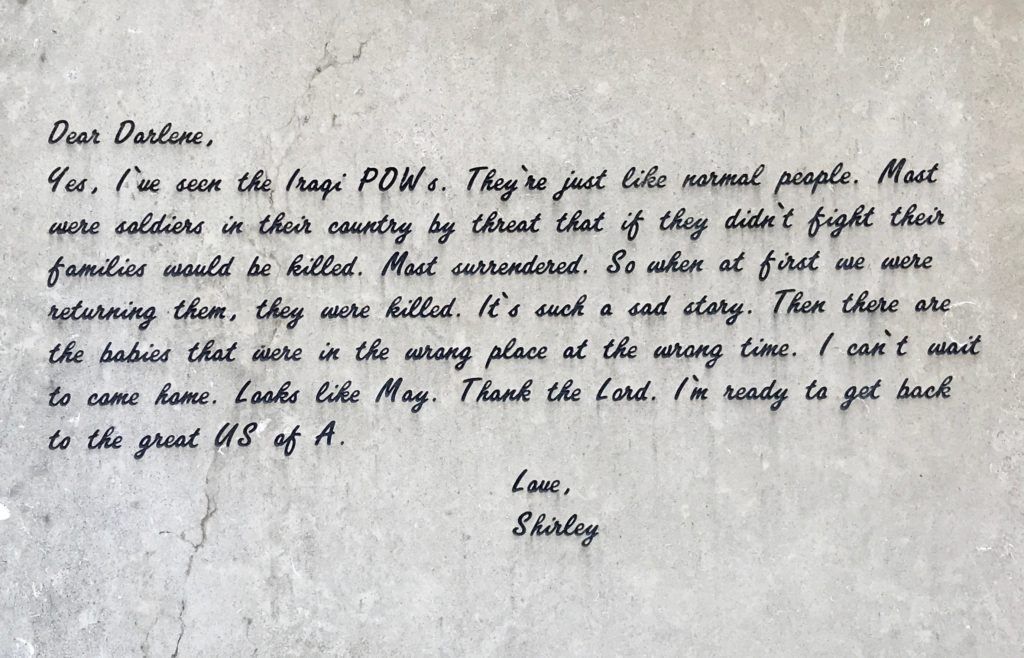 Dear Darlene,
Yes, I've seen the Iraqi POWs. They're just like normal people. Most
were soldiers in their country by threat that if they didn't fight their
families would be killed. Most surrendered. So when at first we were
returning them, they were killed. It's such a sad story. Then there are
the babies that were in the wrong place at the wrong time. I can't wait
to come home. Looks like May. Thank the Lord. I'm ready to get back
to the great US of A.
Love,
Shirley